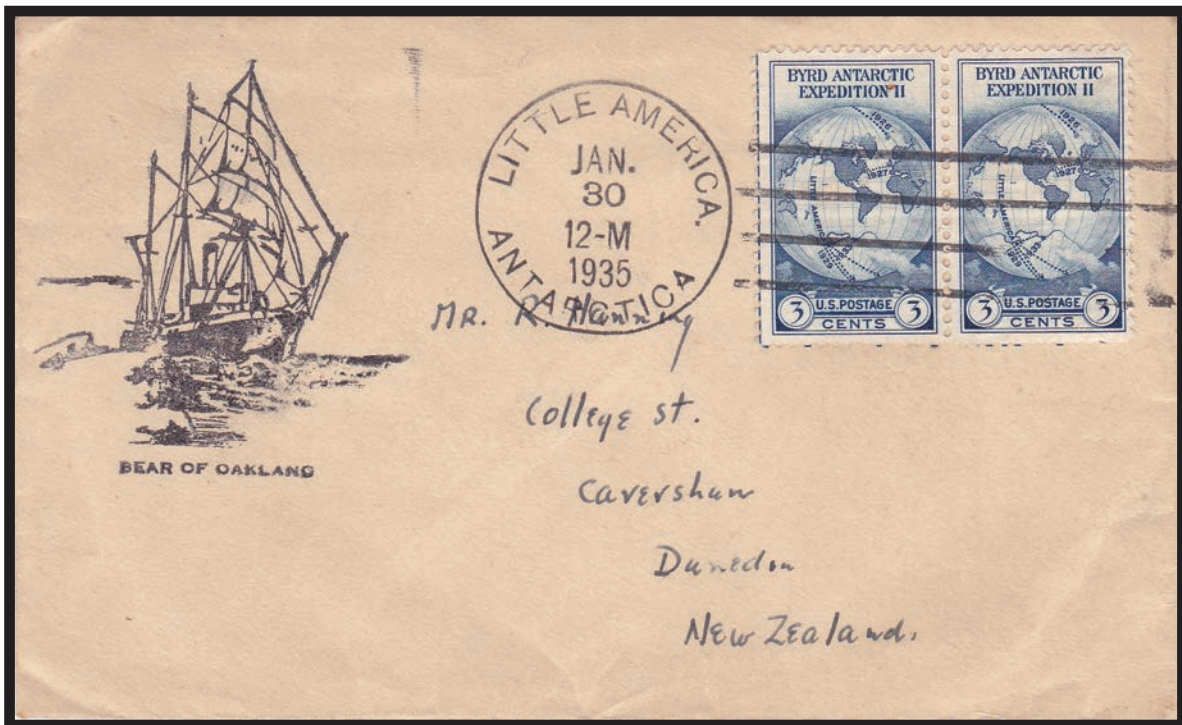 BEAR OF OAKLAND
LITTLE AMERICA.
JAN.
30
12-M
1935
ANTARCTICA
BYRD ANTARCTIC
EXPEDITION II
1926
1927
LITTLE AMERICA
1929
3 U.S. POSTAGE 3
CENTS
BYRD ANTARCTIC
EXPEDITION II
1926
1927
LITTLE AMERICA
1929
3 U.S. POSTAGE 3
CENTS
MR. R.
College St.
Caversham
Dunedin
New Zealand.